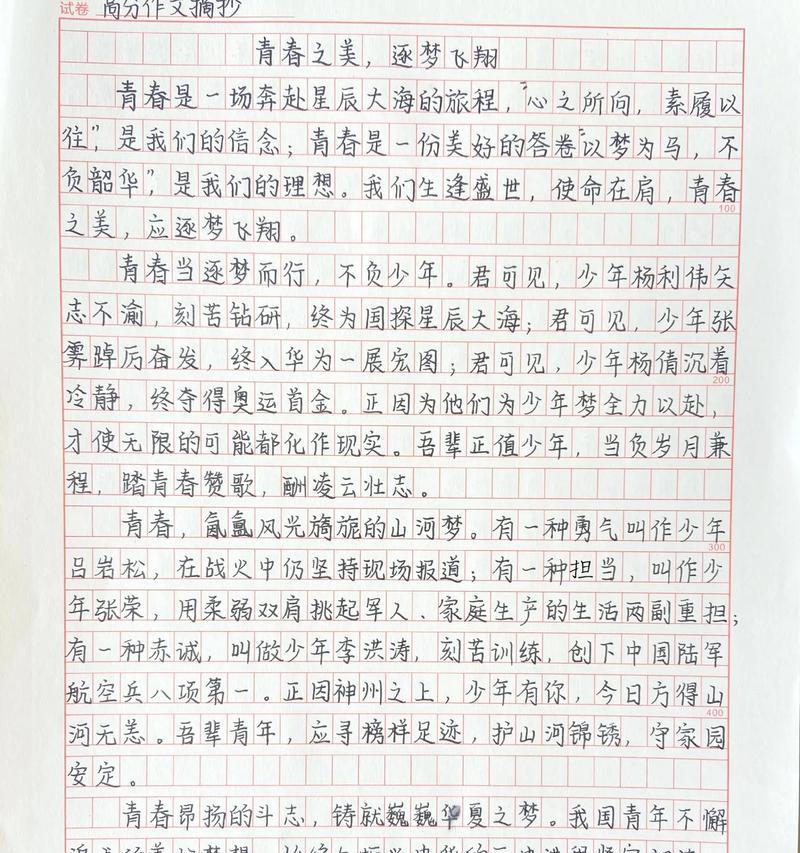 试卷 高分作文摘抄
青春之美，逐梦飞翔
青春是一场奔赴星辰大海的旅程，“心之所向，素履以
往”，是我们的信念；青春是一份美好的答卷“以梦为马，不
负韶华”，是我们的理想。我们生逢盛世，使命在肩，青春
100
之美，应逐梦飞翔。
青春当逐梦而行，不负少年。君可见，少年杨利伟矢
志不渝，刻苦钻研，终为国探星辰大海；君可见，少年张
霁踔厉奋发，终入华为一展宏图；君可见，少年杨倩沉着
200
冷静，终夺得奥运首金。正因为他们为少年梦全力以赴，
才使无限的可能都化作现实。吾辈正值少年，当负岁月兼
程，踏青春赞歌，酬凌云壮志。
青春，氤氲风光旖旎的山河梦。有一种勇气叫作少年
300
吕岩松，在战火中仍坚持现场报道；有一种担当，叫作少
年张荣，用柔弱双肩挑起军人、家庭生产的生活两副重担；
有一种赤诚，叫做少年李洪涛，刻苦训练，创下中国陆军
航空兵八项第一。正因神州之上，少年有你，今日方得山
400
河无恙。吾辈青年，应寻榜样足迹，护山河锦锈，守家园
安定。
青春昂扬的斗志，铸就巍巍华夏之梦。我国青年不懈